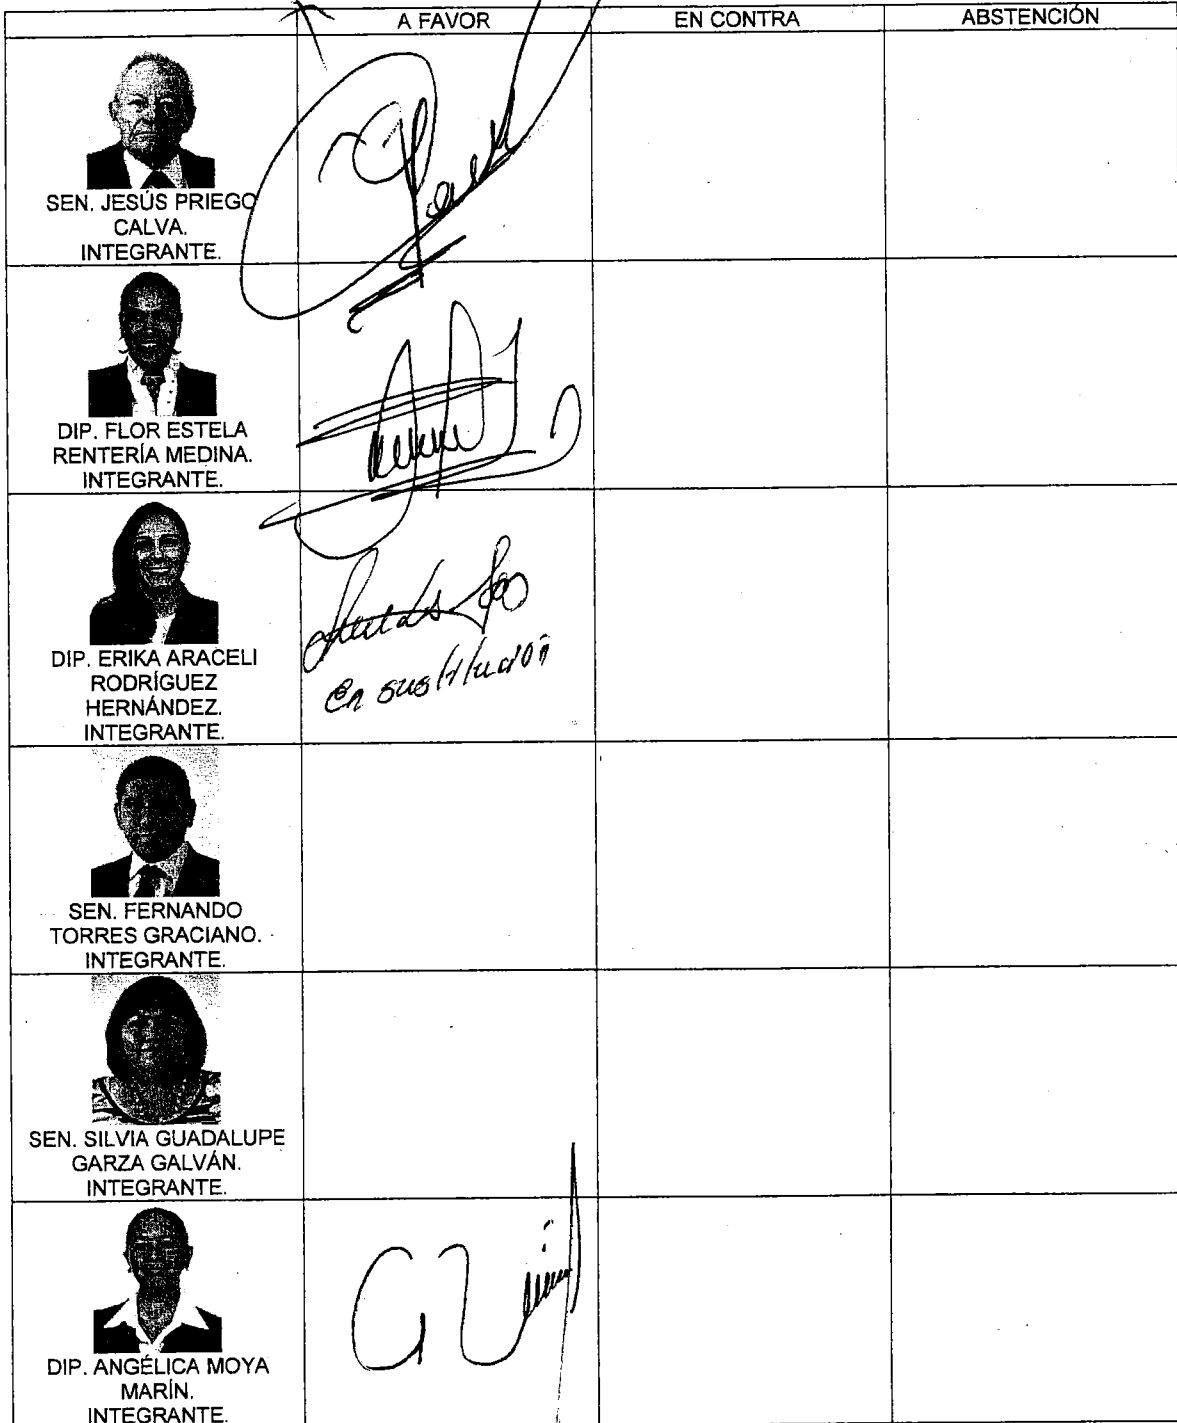 A FAVOR EN CONTRA ABSTENCIÓN
SEN. JESÚS PRIEGO
CALVA.
INTEGRANTE.
DIP. FLOR ESTELA
RENTERÍA MEDINA.
INTEGRANTE.
DIP. ERIKA ARACELI
RODRÍGUEZ
HERNÁNDEZ.
INTEGRANTE.
En sustitución
SEN. FERNANDO
TORRES GRACIANO.
INTEGRANTE.
SEN. SILVIA GUADALUPE
GARZA GALVÁN.
INTEGRANTE.
DIP. ANGÉLICA MOYA
MARÍN.
INTEGRANTE.